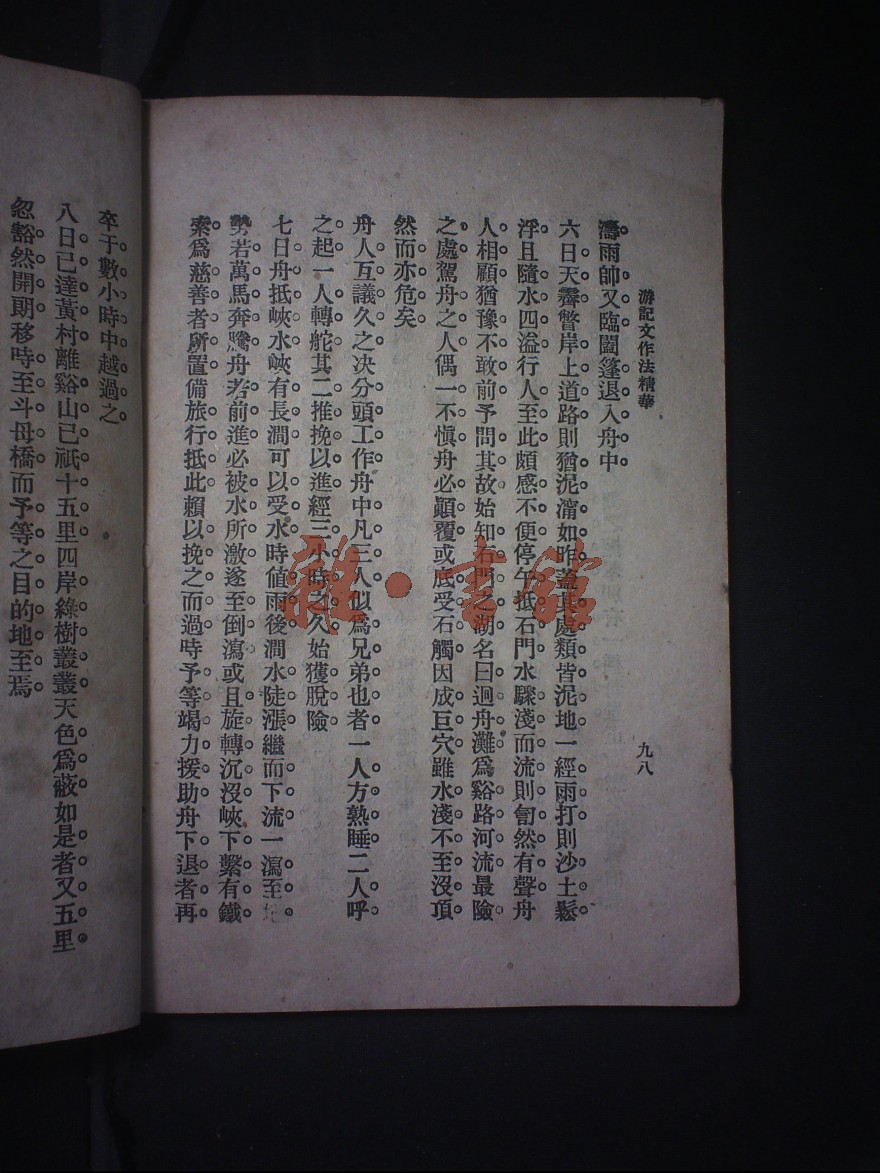 游記文作法精華
九八
濤雨帥又臨闔篷退入舟中
六日天霽瞥岸上道路則猶泥濘如昨蓋其處類皆泥地一經雨打則沙土鬆
浮且隨水四溢行人至此頗感不便停午抵石門水驟淺而流則訇然有聲舟
人相顧猶豫不敢前予問其故始知石門之湖名曰迴舟灘爲谿路河流最險
之處駕舟之人偶一不愼舟必顚覆或底受石觸因成巨穴雖水淺不至沒頂
然而亦危矣
舟人互議久之决分頭工作舟中凡三人似爲兄弟也者一人方熟睡二人呼
之起一人轉舵其二推挽以進經三小時之久始獲脫險
七日舟抵峽水峽有長澗可以受水時値雨後澗水陡漲繼而下流一瀉至
勢若萬馬奔騰舟若前進必被水所激遂至倒瀉或且旋轉沉沒峽下繫有鐵
索爲慈善者所置備旅行抵此賴以挽之而過時予等竭力援助舟下退者再
卒于數小時中越過之
八日已達黃村離谿山已祇十五里四岸綠樹叢叢天色爲蔽如是者又五里
忽豁然開朗移時至斗母橋而予等之目的地至焉
雜·書館